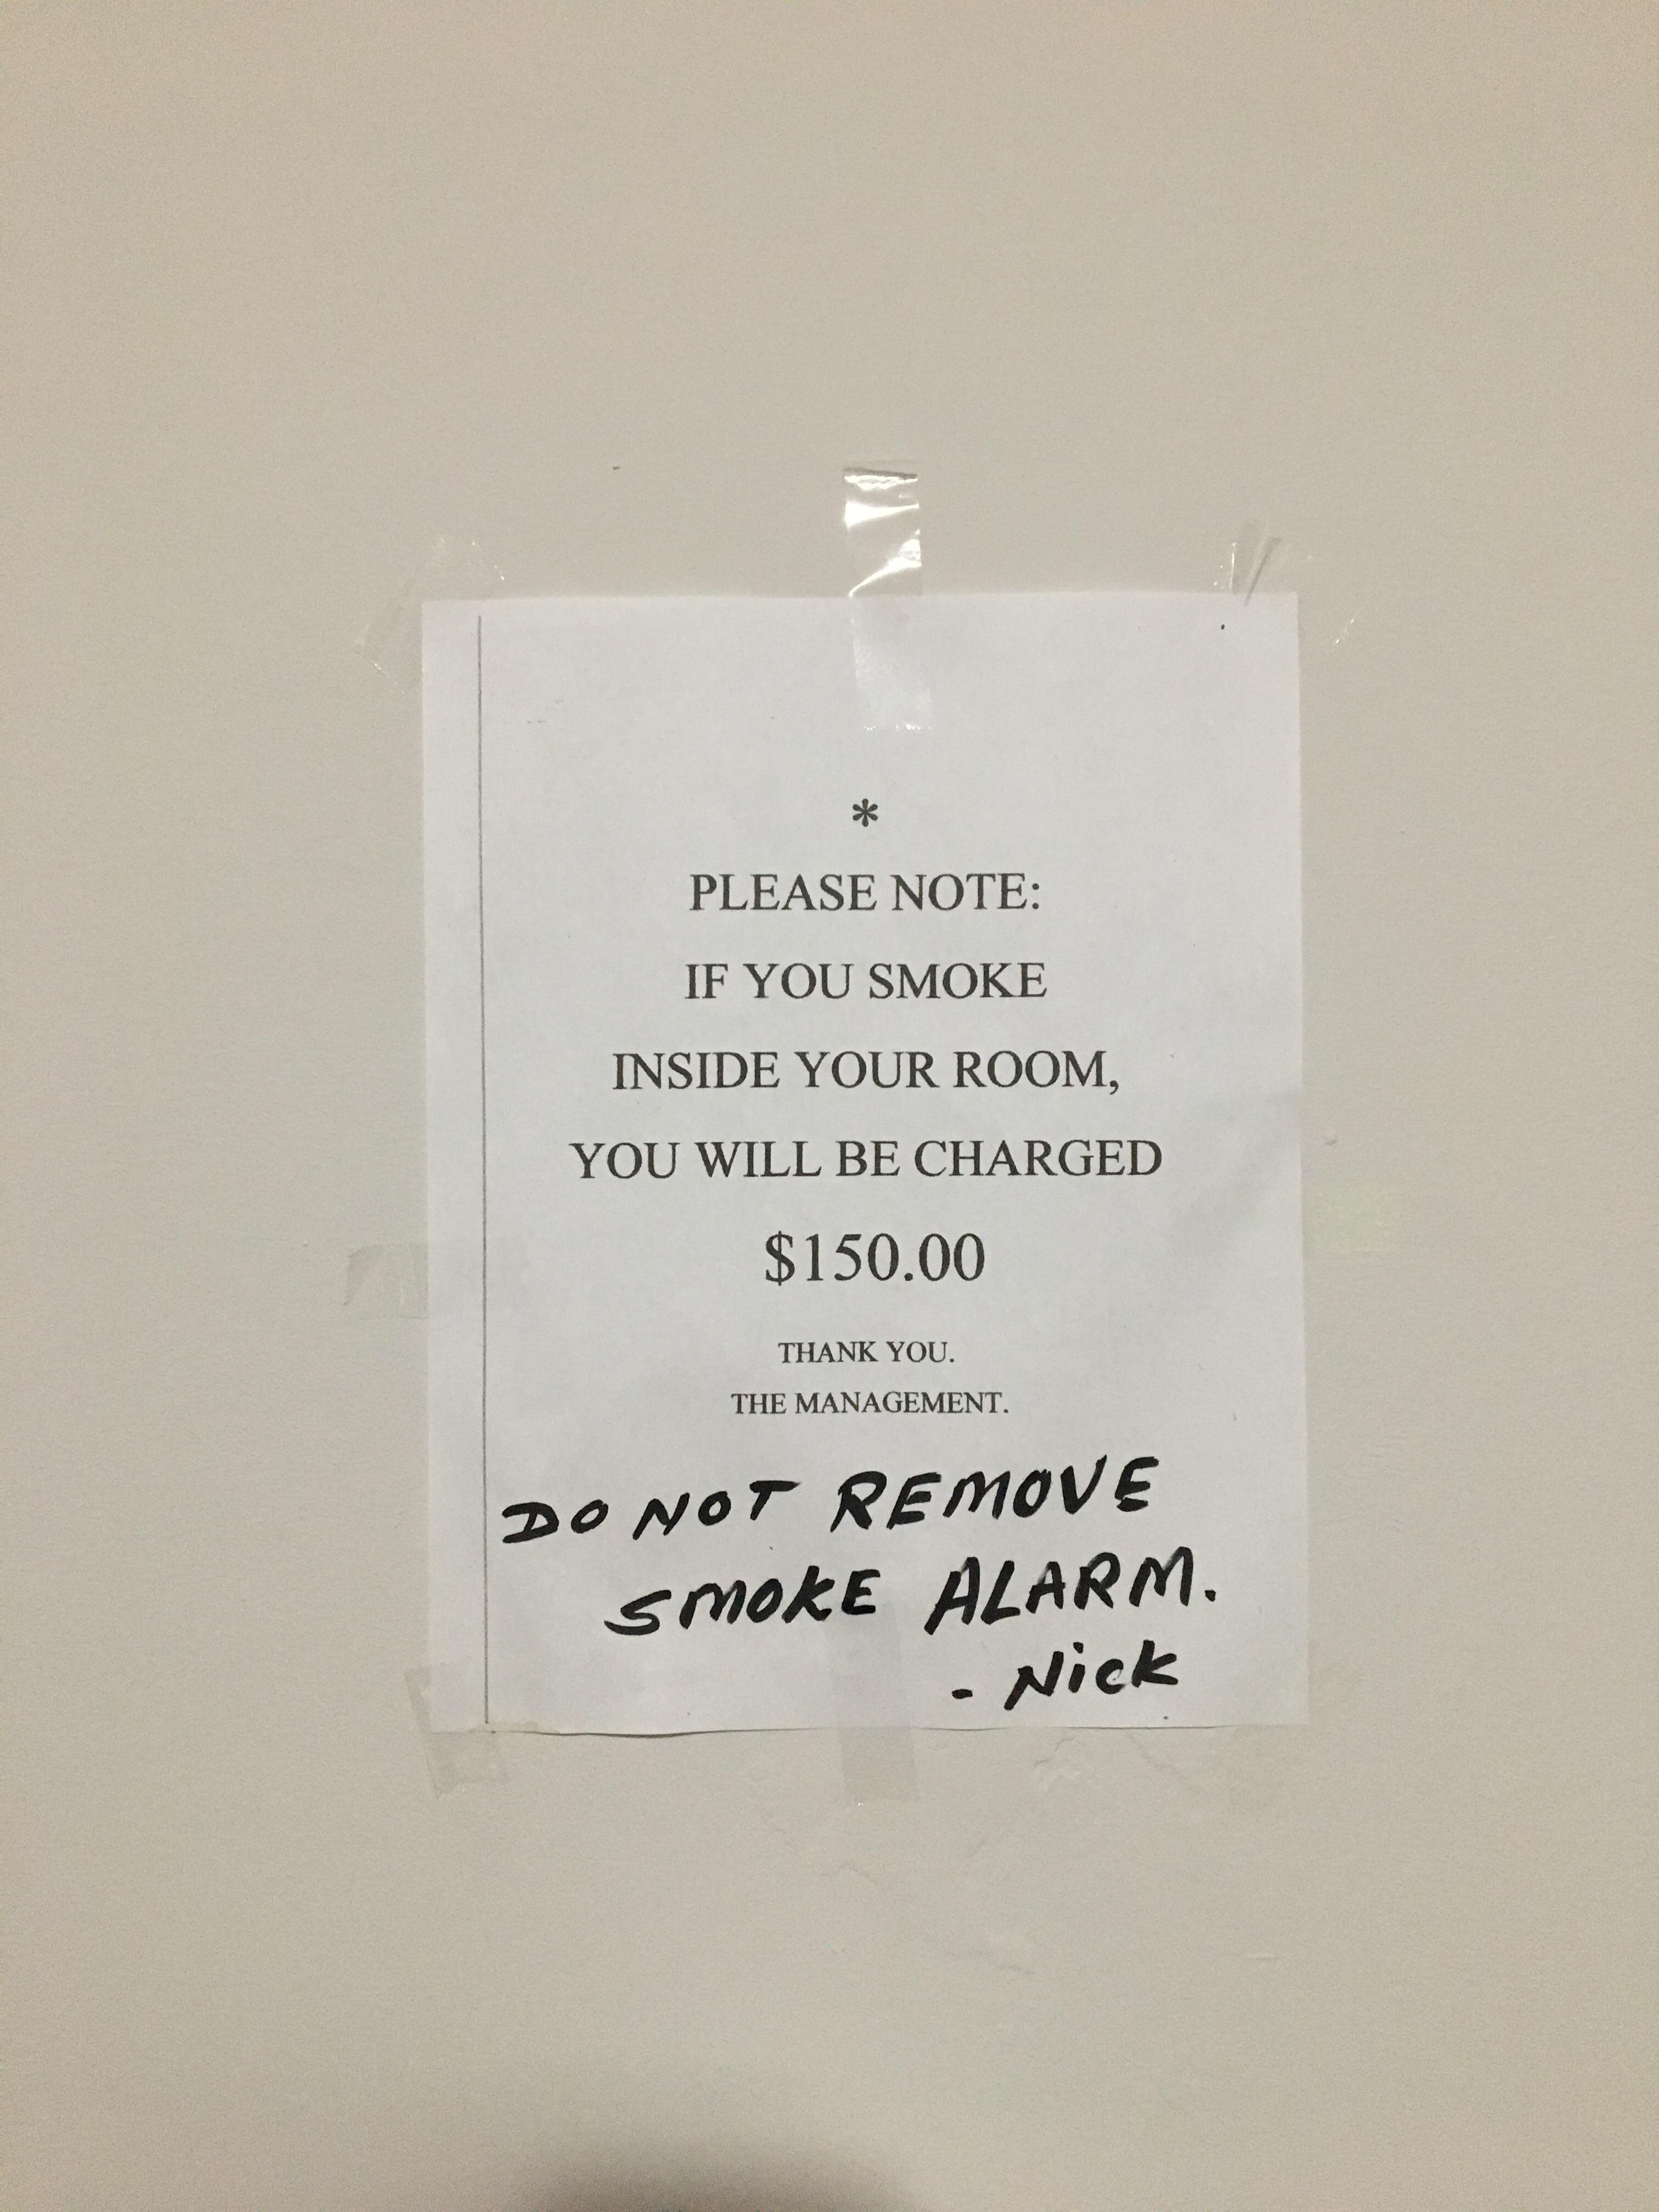 *
PLEASE NOTE:
IF YOU SMOKE
INSIDE YOUR ROOM,
YOU WILL BE CHARGED
$150.00
THANK YOU.
THE MANAGEMENT.
DO NOT REMOVE
SMOKE ALARM.
- Nick